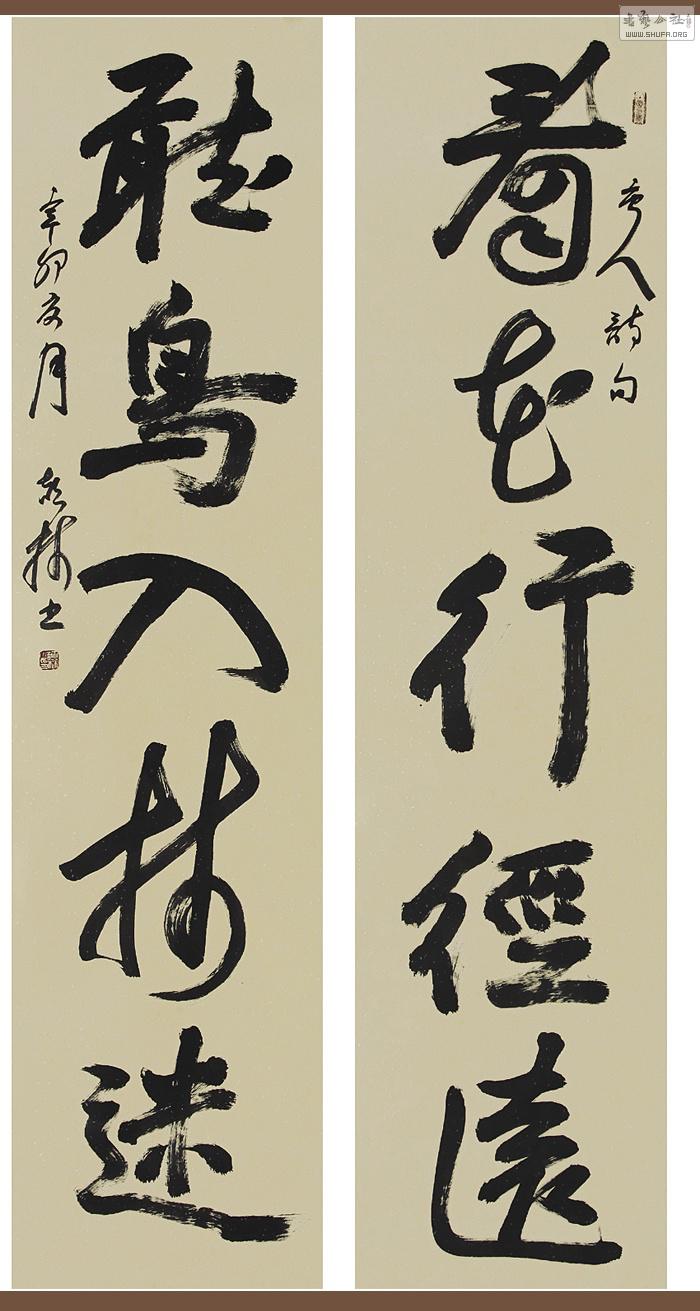 看花行徑遠
人詩句
聽鳥入林迷
辛卯夏月
林书
書藝公社
WWW.SHUFA.ORG